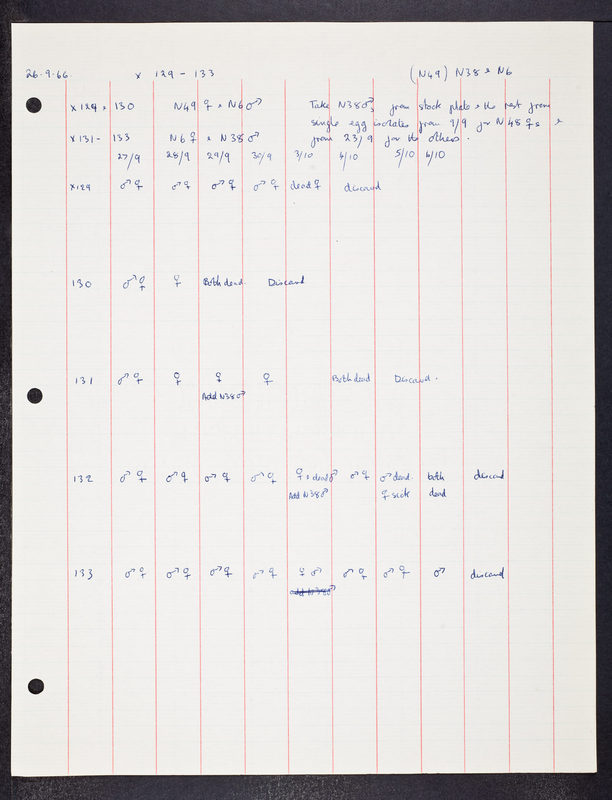 26.9.66. x 129 - 133 (N49) N38 & N6
x129 & 130 N49 ♀ & N6 ♂ Take N38♂ from stock plate & the rest from
single egg isolates from 9/9 for N48 ♀s &
x131 - 133 N6 ♀ & N38 ♂ from 23/9 for the others.
27/9 28/9 29/9 30/9 3/10 4/10 5/10 6/10
x129 ♂♀ ♂♀ ♂♀ ♂♀ dead ♀ discard
130 ♂♀ ♀ Both dead. Discard
131 ♂♀ ♀ ♀ ♀ Both dead Discard.
Add N38♂
132 ♂♀ ♂♀ ♂♀ ♂♀ ♀ & dead♂ ♂♀ ♂ dead. both discard
Add N38♂ ♀ sick dead
133 ♂♀ ♂♀ ♂♀ ♂♀ ♀♂ ♂♀ ♂♀ ♂ discard
add N38♂